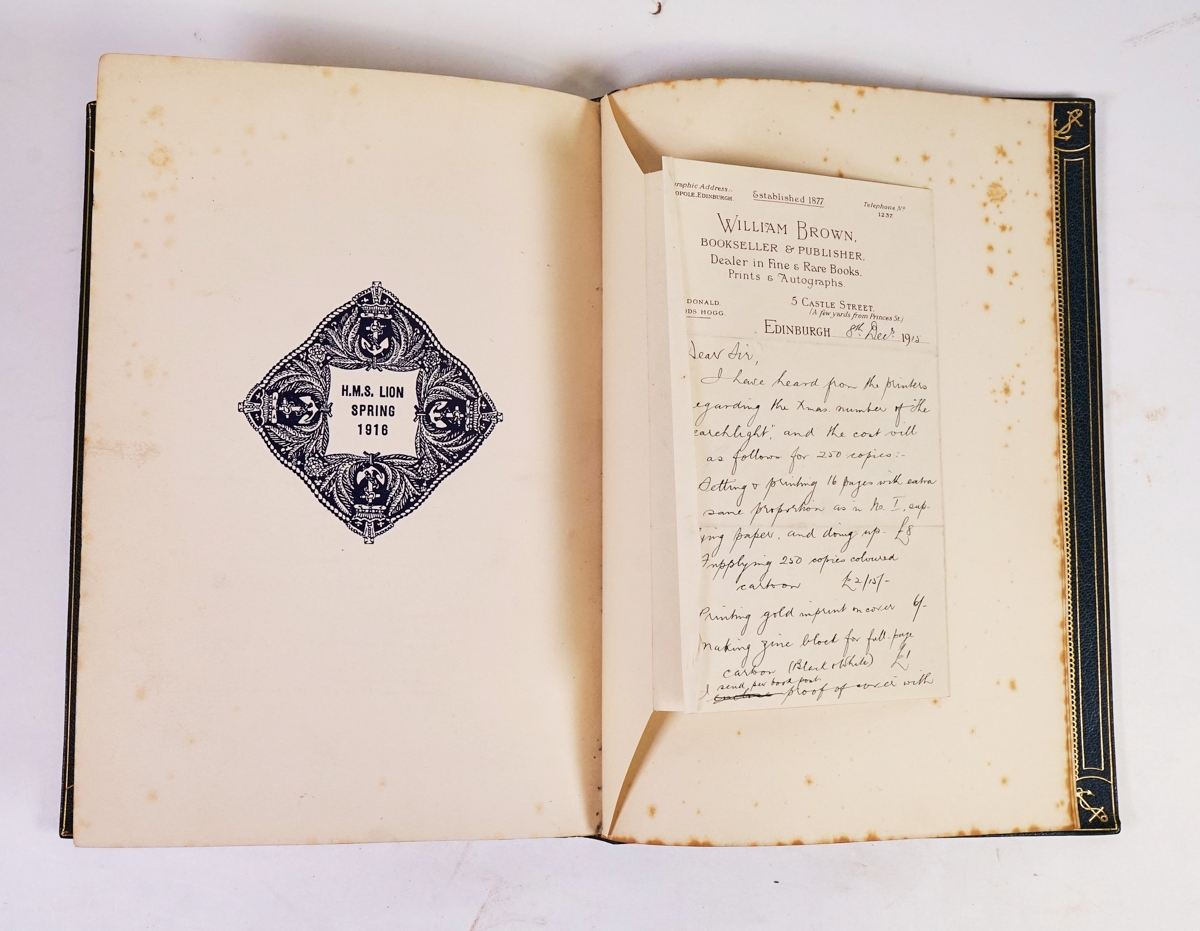 H.M.S. LION
SPRING
1916
raphic Address—
OPOLE, EDINBURGH.
Established 1877
Telephone Nº
1237
WILLIAM BROWN,
BOOKSELLER & PUBLISHER,
Dealer in Fine & Rare Books,
Prints & Autographs.
DONALD.
DS HOGG.
5 CASTLE STREET,
(A few yards from Princes St.)
EDINBURGH 8th Decr. 1915
Dear Sir,
I have heard from the printers
egarding the Xmas. number of "the
earchlight", and the cost will
as follows for 250 copies:-
Setting & printing 16 pages with extra
same proportion as in No I, sup-
ing paper, and doing up - £8
Supplying 250 copies coloured
cartoon £2/15/-
Printing gold imprint on cover 6/-
Making zinc block for full-page
cartoon (Black & White) £1
I send per book post
enclose proof of cover with